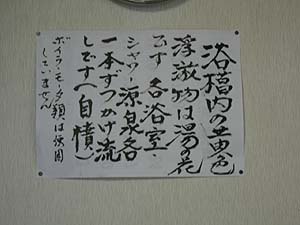 浴槽内の黄色
浮游物は湯の花
です 各浴室・
シャワー源泉各
一本ずつかけ流
しです(自噴)
ボイラ・モータ類は使用
していません